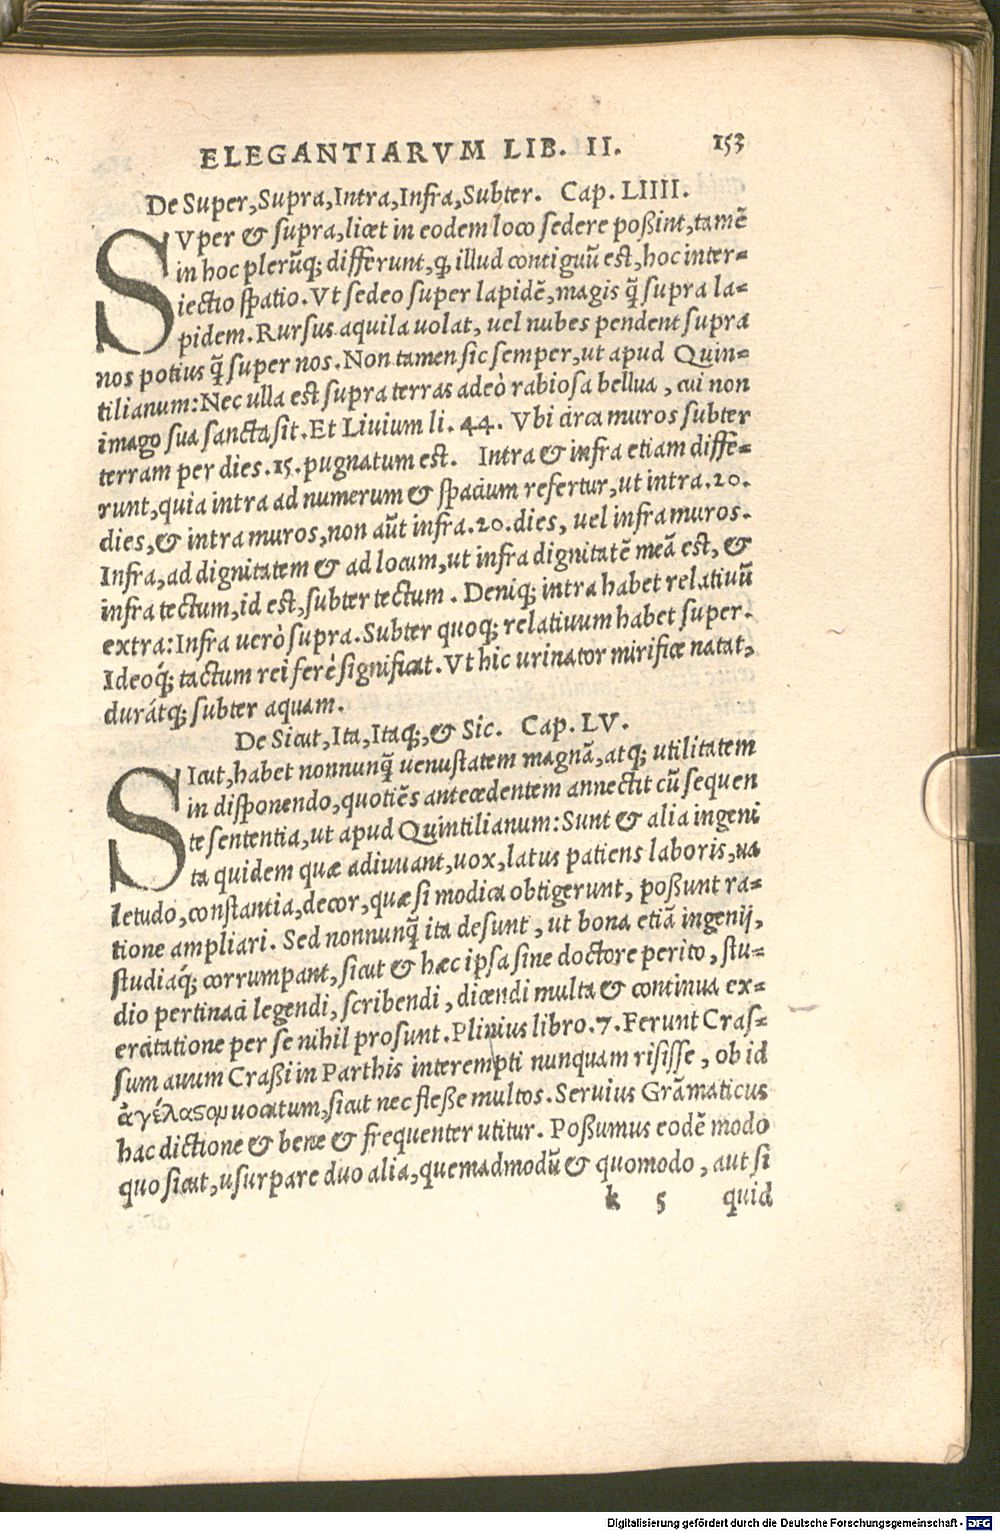 ELEGANTIARVM LIB. II. 153
De Super, Supra, Intra, Infra, Subter. Cap. LIIII.
SVper & supra, licet in eodem loco sedere poßint, tamē
in hoc plerūq; differunt, ꝙ illud contiguū est, hoc inter-
iectio spatio. Vt sedeo super lapidē, magis q̃ supra la-
pidem. Rursus aquila uolat, uel nubes pendent supra
nos potius q̃ super nos. Non tamen sic semper, ut apud Quin-
tilianum: Nec ulla est supra terras adeò rabiosa bellua, cui non
imago sua sancta sit. Et Liuium li. 44. Vbi circa muros subter
terram per dies .15. pugnatum est. Intra & infra etiam diffe-
runt, quia intra ad numerum & spacium refertur, ut intra .20.
dies, & intra muros, non aūt infra .20. dies, uel infra muros.
Infra, ad dignitatem & ad locum, ut infra dignitatē meā est, &
infra tectum, id est, subter tectum. Deniq; intra habet relatiuū
extra: Infra uerò supra. Subter quoq; relatiuum habet super.
Ideoq́; tactum rei ferè significat. Vt hic urinator mirifice natat,
durátq; subter aquam.
De Sicut, Ita, Itaq;, & Sic. Cap. LV.
SIcut, habet nonnunq̃ uenustatem magnā, atq; utilitatem
in disponendo, quotiēs antecedentem annectit cū sequen
te sententia, ut apud Quintilianum: Sunt & alia ingeni
ta quidem quæ adiuuant, uox, latus patiens laboris, ua
letudo, constantia, decor, quæ si modica obtigerunt, poßunt ra-
tione ampliari. Sed nonnunq̃ ita desunt, ut bona etiā ingenij,
studiaq́; corrumpant, sicut & hæc ipsa sine doctore perito, stu-
dio pertinaci legendi, scribendi, dicendi multa & continua ex-
ercitatione per se nihil prosunt. Plinius libro. 7. Ferunt Cras-
sum auum Craßi in Parthis interempti nunquam risisse, ob id
ἀγέλαϛομ uocatum, sicut nec fleße multos. Seruius Grāmaticus
hac dictione & bene & frequenter utitur. Poßumus eodē modo
quo sicut, usurpare duo alia, quemadmodū & quomodo, aut si
k 5 quid
Digitalisierung gefördert durch die Deutsche Forschungsgemeinschaft - DFG